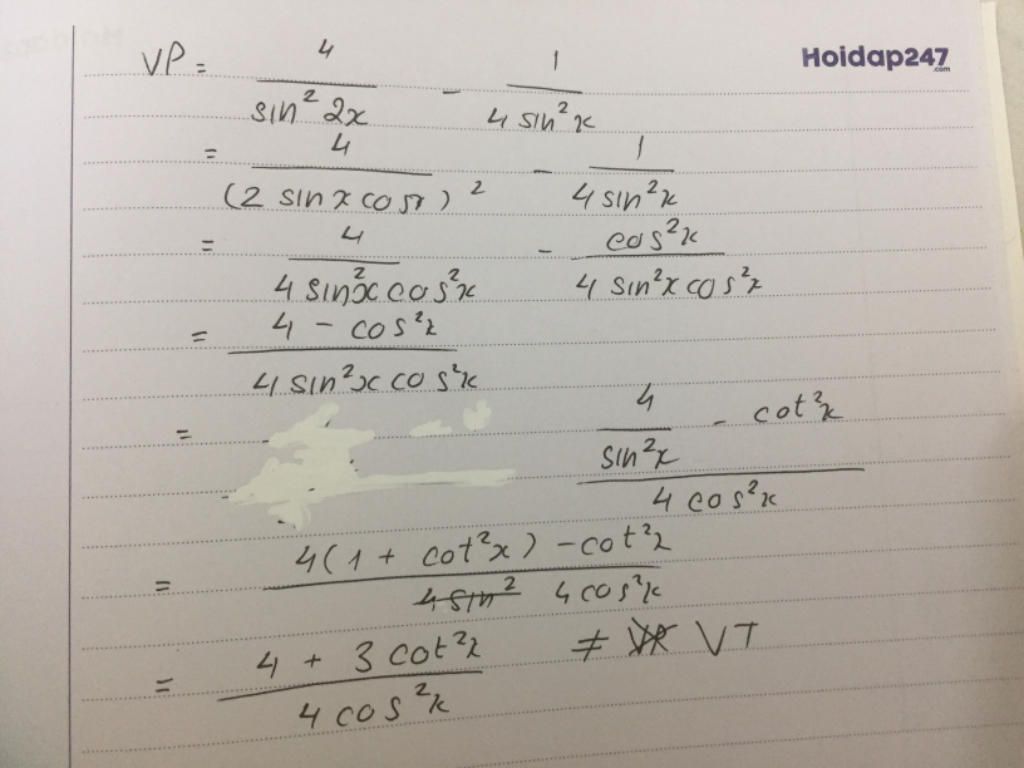 Hoidap247
.com
VP = 4 / sin² 2x - 1 / 4 sin²x
= 4 / (2 sin x cos x)² - 1 / 4 sin²x
= 4 / 4 sin²x cos²x - cos²x / 4 sin²x cos²x
= 4 - cos²x / 4 sin²x cos²x
= 4 / sin²x - cot²x / 4 cos²x
= 4(1 + cot²x) - cot²x / 4 sin² 4 cos²x
= 4 + 3 cot²x / 4 cos²x ≠ VP VT